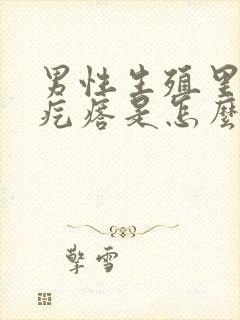 男性生殖里
疙瘩是怎麼
擎雪